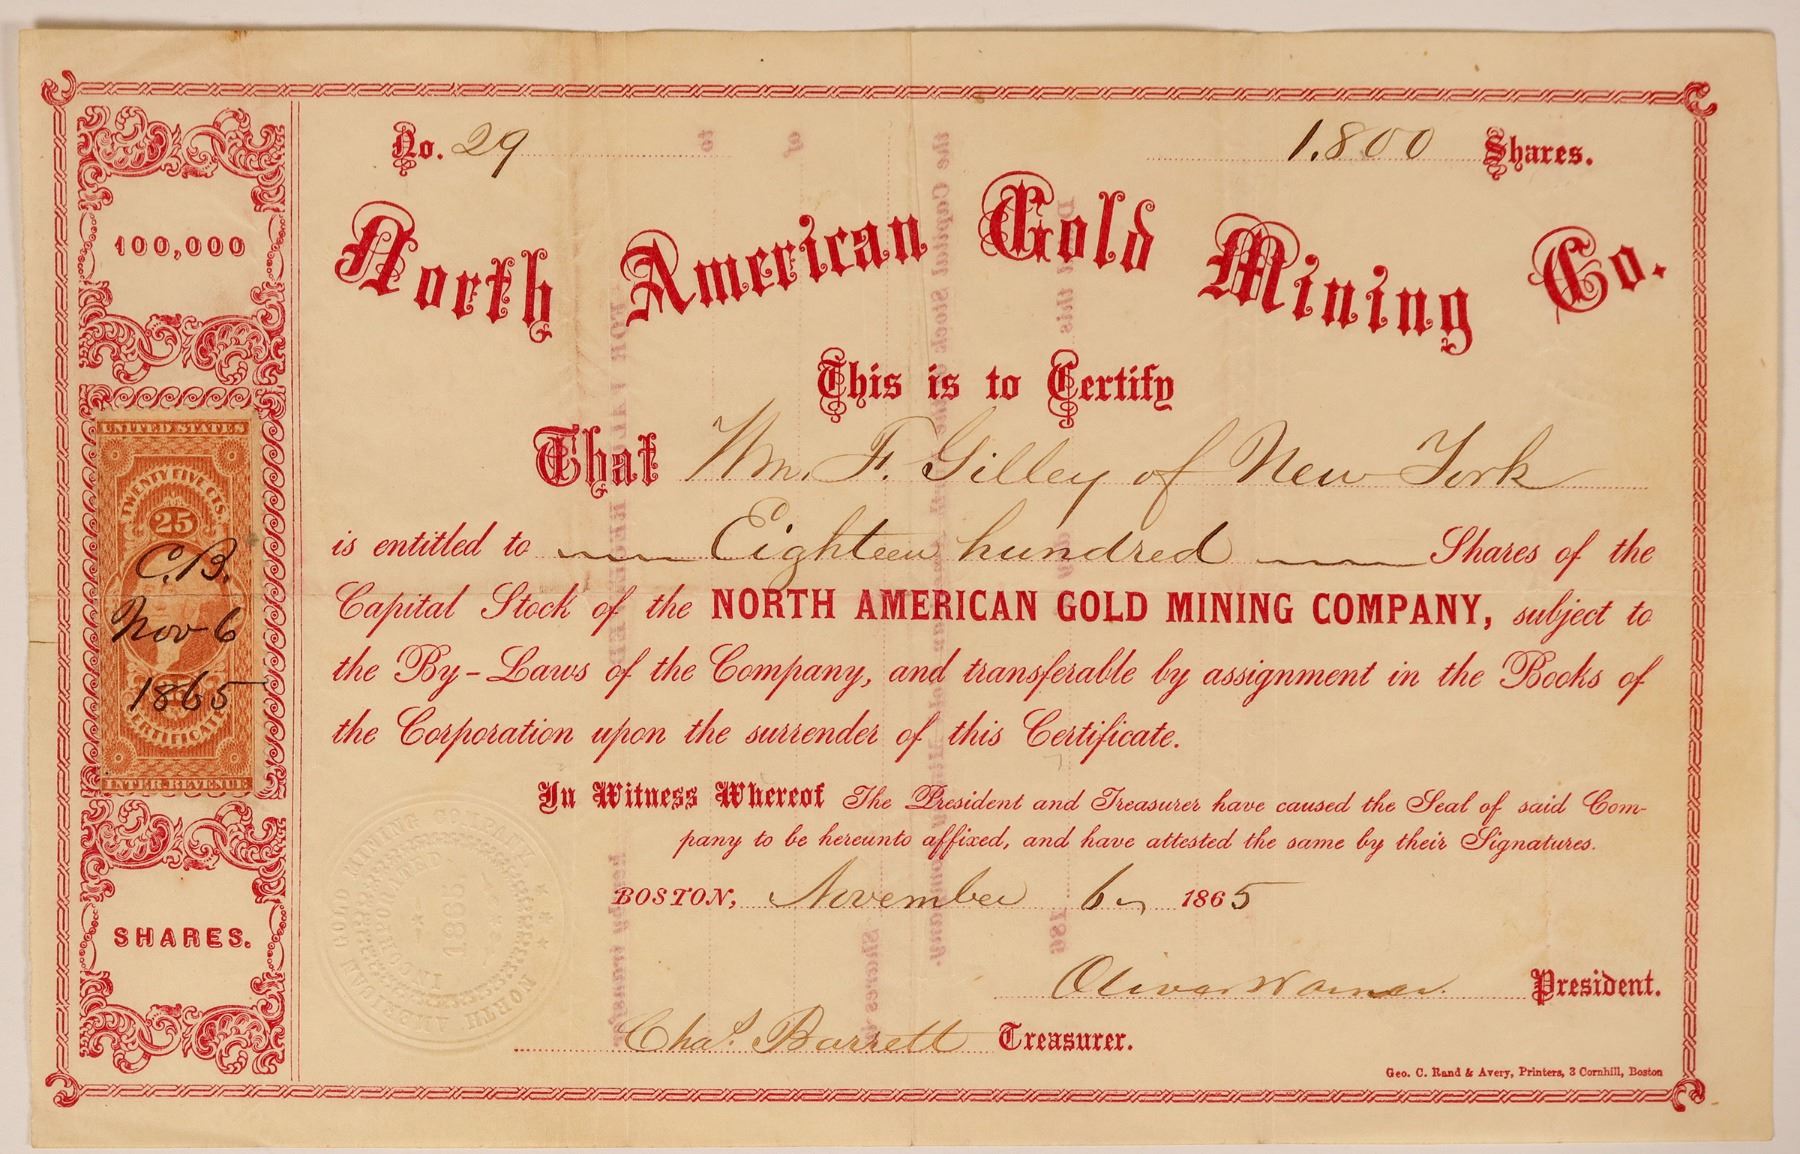 No. 29
1.800 Shares.
100,000
North American Gold Mining Co.
This is to Certify
That Wm. F. Gilley of New York
is entitled to Eighteen hundred Shares of the
Capital Stock of the NORTH AMERICAN GOLD MINING COMPANY, subject to
the By-Laws of the Company, and transferable by assignment in the Books of
the Corporation upon the surrender of this Certificate.
In Witness Whereof The President and Treasurer have caused the Seal of said Com-
pany to be hereunto affixed, and have attested the same by their Signatures.
BOSTON, November 6 1865
Oliver Warner. President.
Chas. Barrett Treasurer.
Geo. C. Rand & Avery, Printers, 3 Cornhill, Boston
UNITED STATES
TWENTY FIVE CTS.
25
C.B.
Nov 6
1865
CERTIFICATE
INTER. REVENUE
SHARES.
NORTH AMERICAN GOLD MINING COMPANY
INCORPORATED
1865